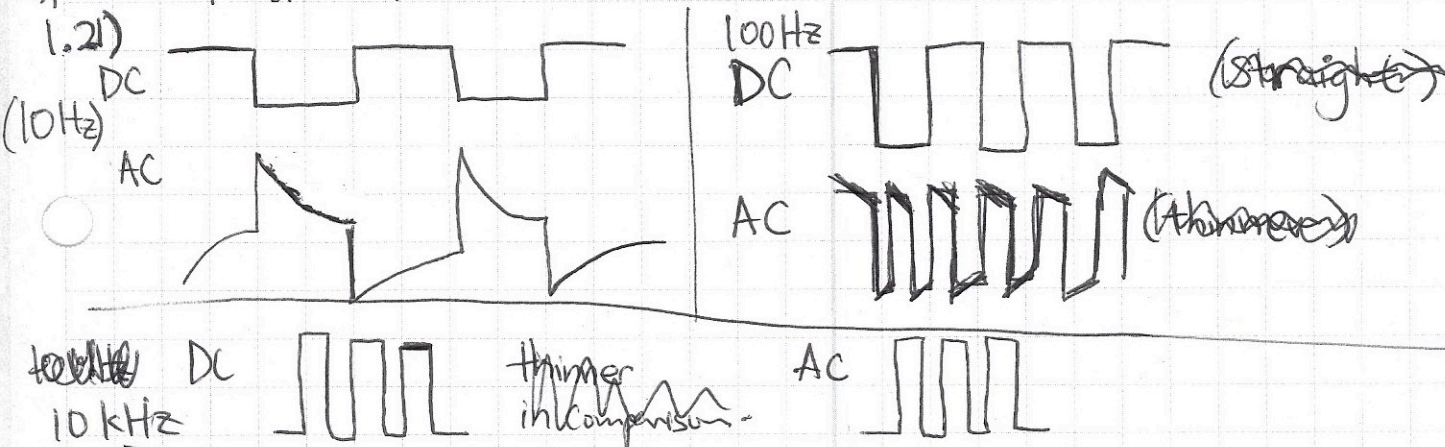 1.21)
DC
(10Hz)
AC
100Hz
DC
(Straight)
AC
10 kHz
DC
thinner
in comparison.
AC